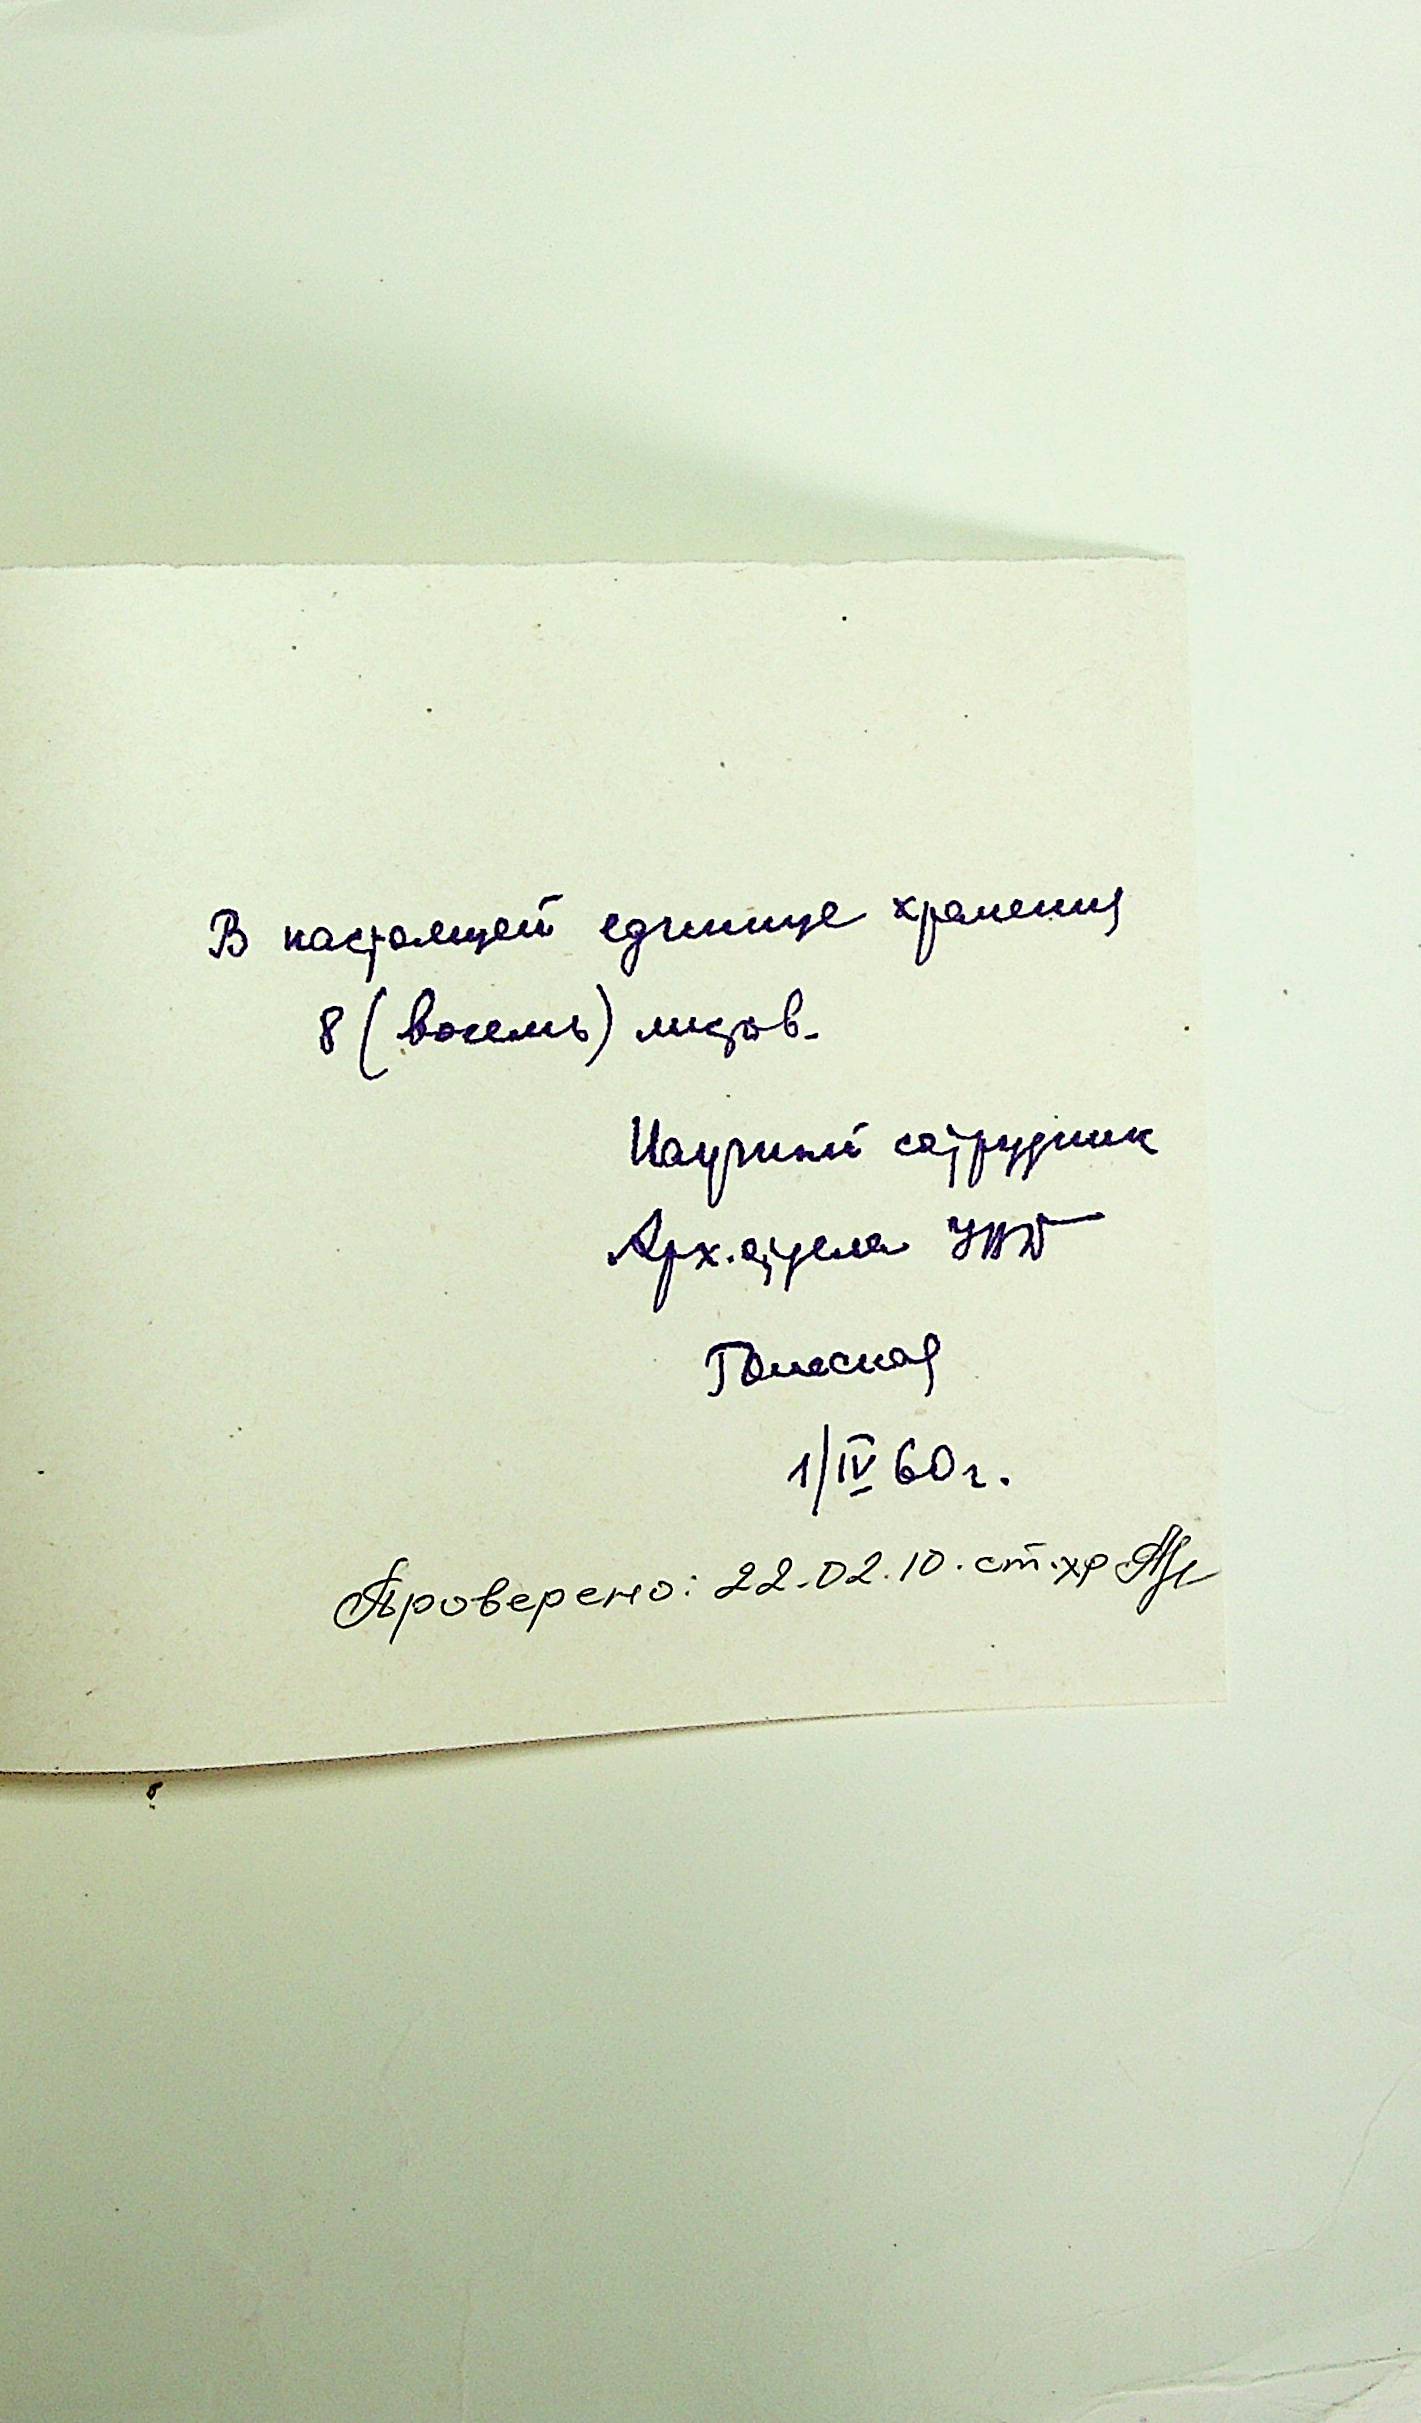 В настоящей единице хранения
8 (восемь) листов.
Научный сотрудник
Арх. отдела УВД
1/IV 60 г.
Проверено: 22.02.10. ст. хр